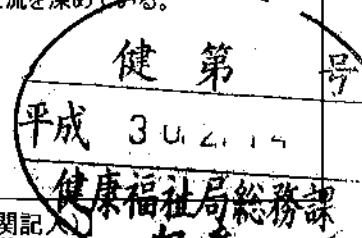 流を深めている。
健 第 号
平成 30.2.14
健康福祉局総務課
関記入